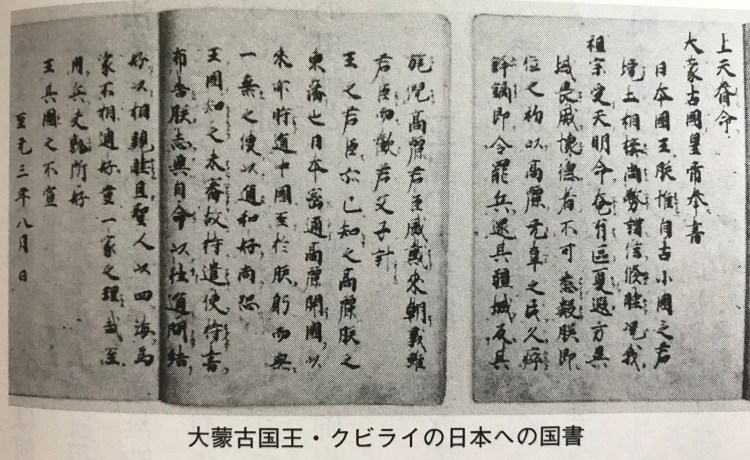 上天眷命
大蒙古國皇帝奉書
日本國王朕惟自古小國之君
境土相接尚務講信修睦況我
祖宗受天明命奄有區夏遐方異
域畏威懷德者不可悉數朕即
位之初以高麗无辜之民久瘁
鋒鏑即令罷兵還其疆域反其
旄倪高麗君臣感戴來朝義雖
君臣而歡若父子計
王之君臣亦已知之高麗朕之
東藩也日本密邇高麗開國以
來亦時通中國至於朕躬而無
一乘之使以通和好尚恐
王國知之未審故特遣使持書
布告朕志冀自今以往通問結
好以相親睦且聖人以四海為
家不相通好豈一家之理哉至
用兵夫孰所好
王其圖之不宣
至元三年八月日
大蒙古国王・クビライの日本への国書